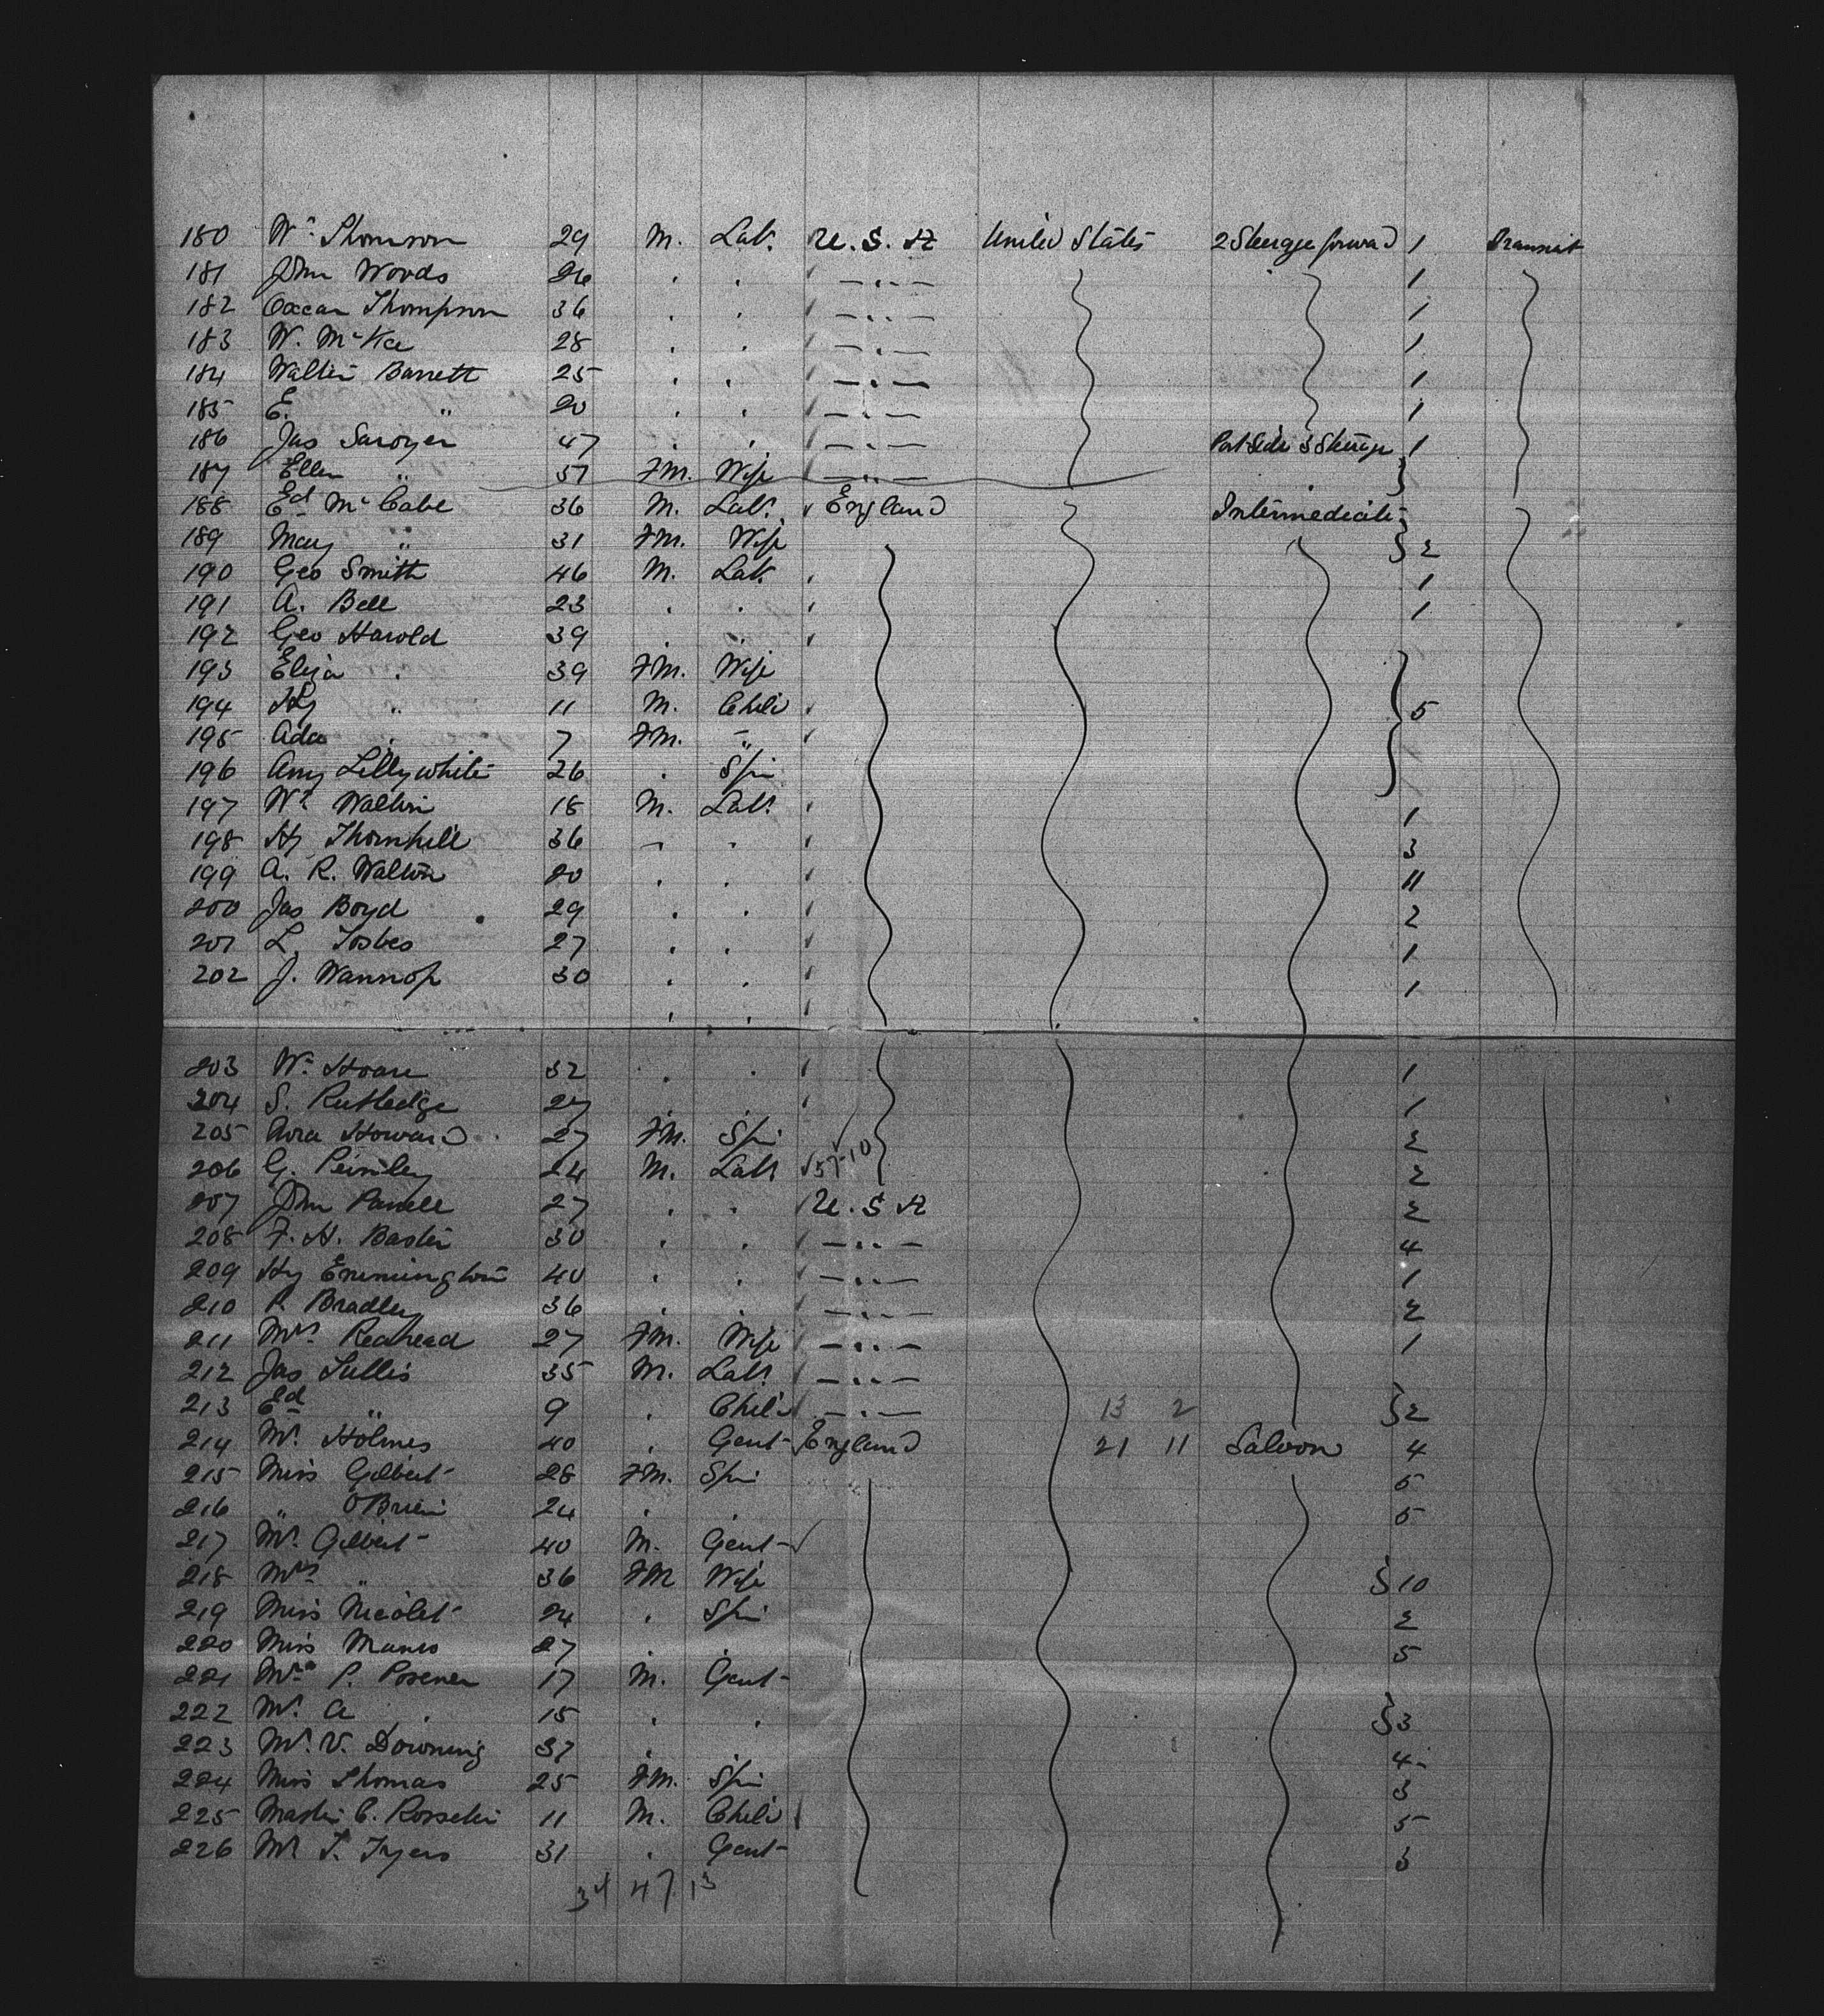 180 Wm Thomson 29 M. Labr U.S.A United States 2 Steerage forward 1 Transit
181 John Woods 26 . . —..— 1
182 Oscar Thompson 36 . . —..— 1
183 W. McKee 28 . . —..— 1
184 Walter Barrett 25 . . —..— 1
185 E. " 20 . . —..— 1
186 Jas Sawyer 47 . . —..— Port Side 3 Steerage 1
187 Ellen " 37 FM. Wife —..—
188 Ed McCabe 36 M. Labr England Intermediate
189 Mary " 31 FM. Wife 2
190 Geo Smith 46 M. Labr 1
191 A. Bell 23 . . 1
192 Geo Harold 39 . .
193 Eliza " 39 FM. Wife
194 Hy " 11 M. Child 5
195 Ada " 7 FM. "
196 Amy Lillywhite 26 . Spin
197 Wm Walton 18 M. Labr 1
198 Hy Thornhill 36 . . 3
199 A. R. Walton 20 . . 11
200 Jas Boyd 29 . . 2
201 L. Forbes 27 . . 1
202 J. Wannop 30 . . 1
203 Wm Hoare 32 . . 1
204 S. Rutledge 27 . . 1
205 Howard 27 FM. Spin 2
206 G. 24 M. Labr 57-10 2
207 John 27 . . U.S.A 2
208 F. H. Baxter 30 . . —..— 4
209 Hy Emmington 40 . . —..— 1
210 P. Bradley 36 . . —..— 2
211 Mrs Readhead 27 FM. Wife —..— 1
212 Jas Tullis 35 M. Labr —..—
213 Ed " 9 . Child —..— 13 2 2
214 Mr. Holmes 40 . Gent England 21 11 Saloon 4
215 Miss Gilbert 28 FM. Spin 5
216 " OBrien 24 . . 5
217 Mr. Gilbert 40 M. Gent
218 Mrs " 36 FM Wife 10
219 Miss Nicolet 24 . Spin 2
220 Miss Munro 27 . . 5
221 Mr. P. Posener 17 M. Gent
222 Mr. A " 15 . . 3
223 Mr. V. Downing 37 . . 4
224 Miss Thomas 25 FM. Spin 3
225 Master C. 11 M. Child 5
226 Mr T. Fryers 31 . Gent 3
34 47 13